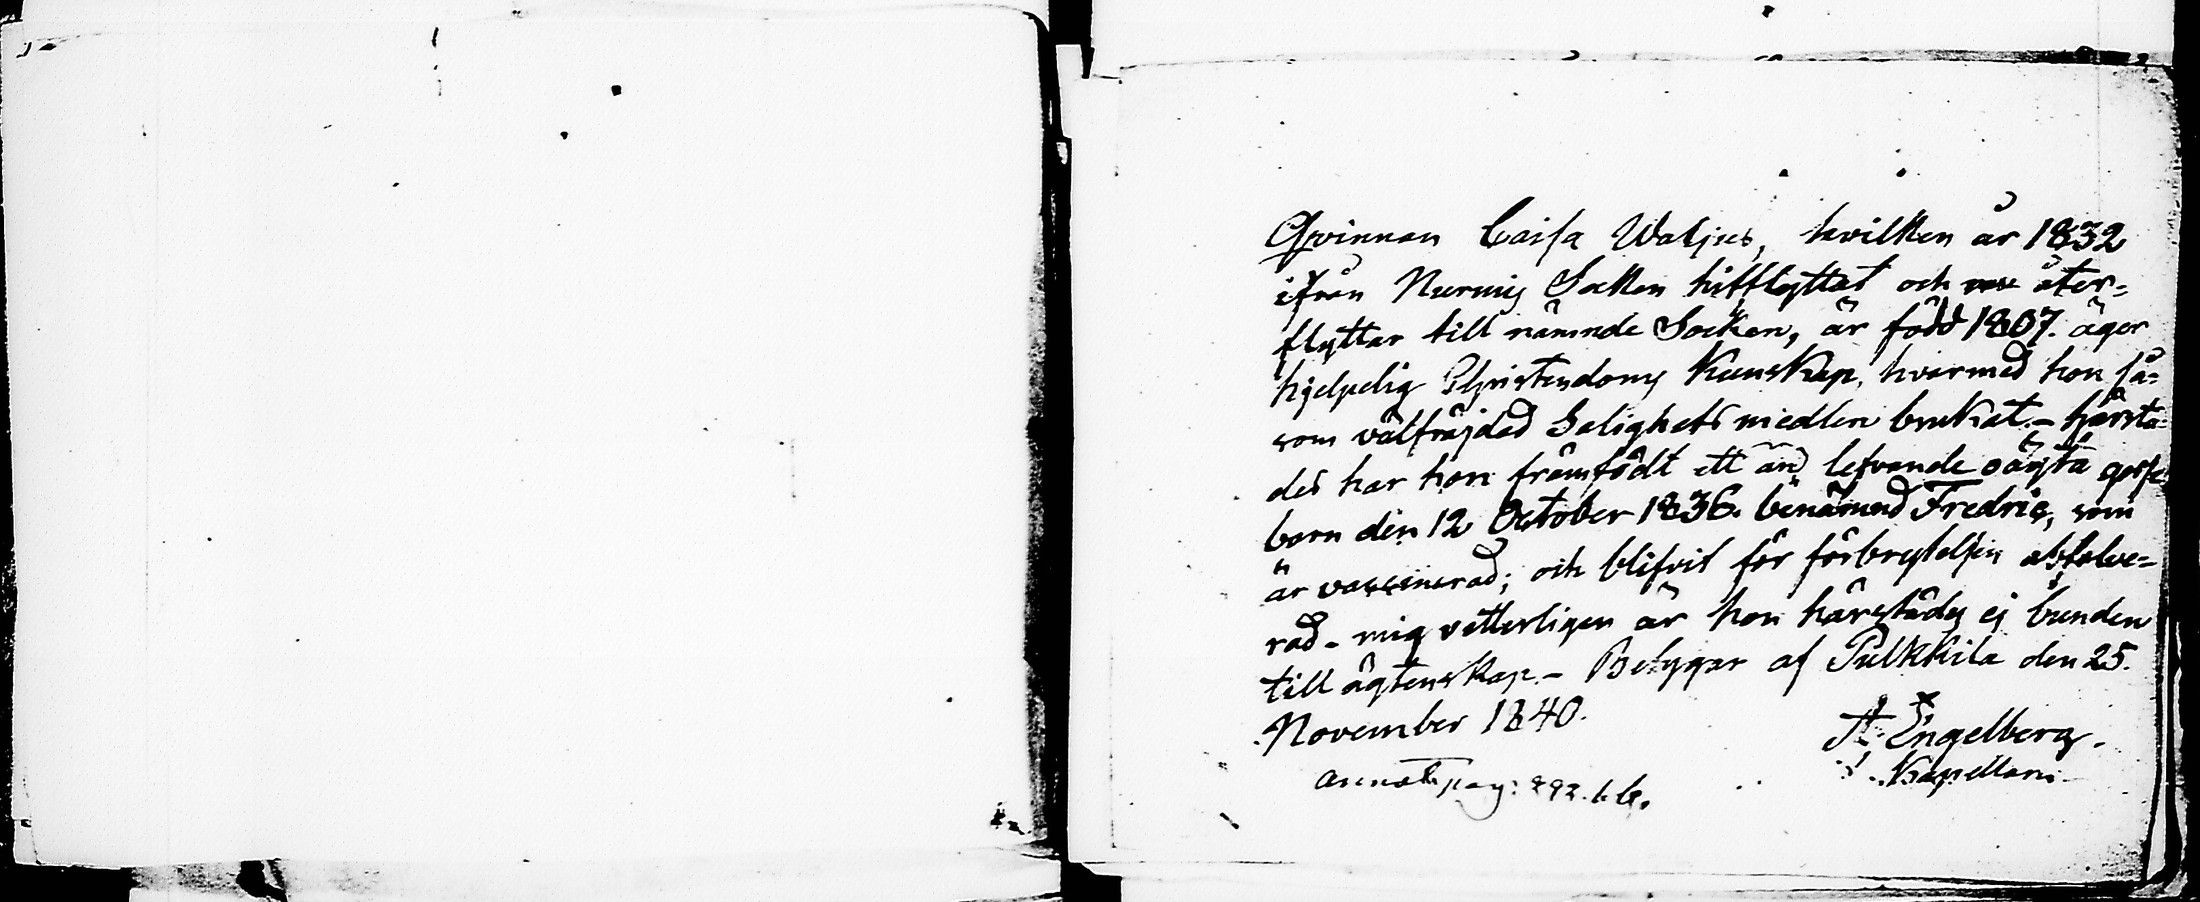 Qvinnan Caisa Waljus, hvilken år 1832
ifrån Nurmis Socken hitflyttat och åter=
flyttar till nämnde Socken, är född 1807. äger
hjelpelig Christendoms Kunskap, hvarmed hon så=
som välfräjdad Salighets medlen brukat. – Härstä=
des har hon framfödt ett än lefvande oägta gosse
barn den 12 October 1836. benämnd Fredric, som
är vaccinerad; och blifvit för förbrytelsen absolve=
rad – mig vetterligen är hon härstädes ej bunden
till ägtenskap. – Betygar af Pulkkila den 25.
November 1840.
Engelberg.
Kapellan
annot. pag: 292.